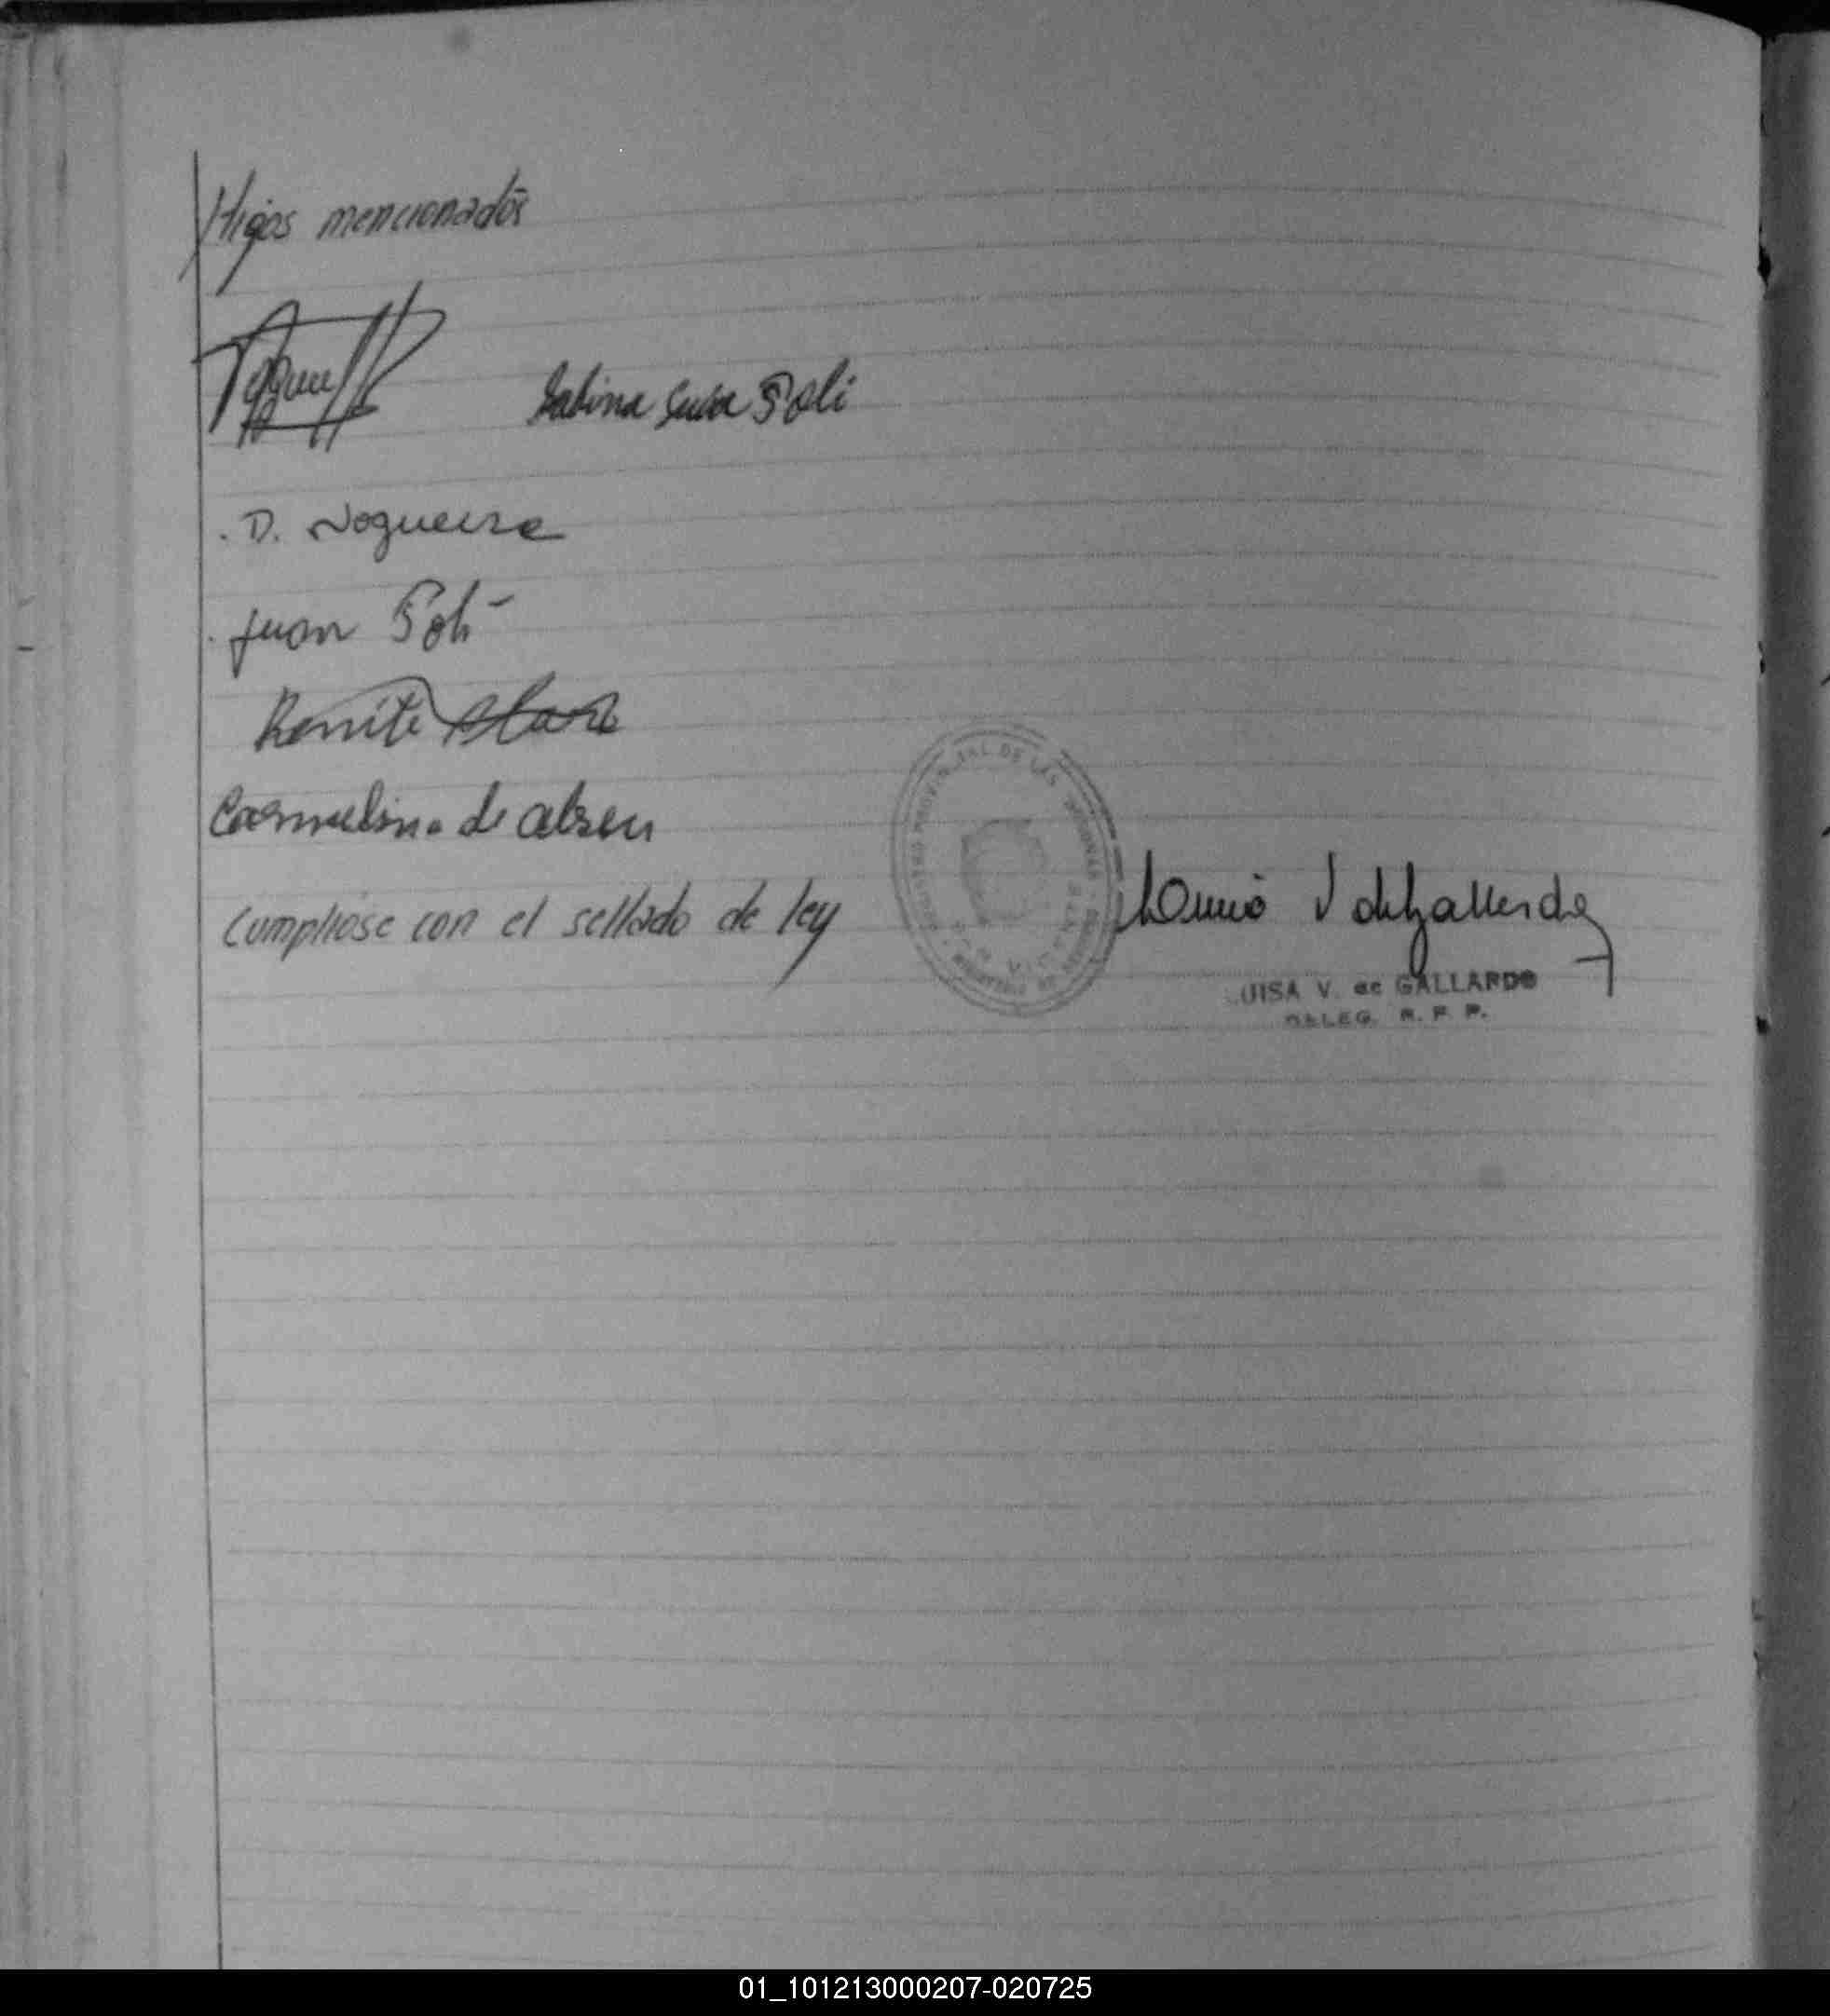 Higos mencionados
Sabina Luisa Poli
D. Nogueira
Juan Poli
Benite
Carmelina de abreu
Cumpliose con el sellado de ley
REGISTRO PROVINCIAL DE LAS PERSONAS
V de Gallardo
LUISA V. de GALLARDO
DELEG. R. P. P.
01_101213000207-020725